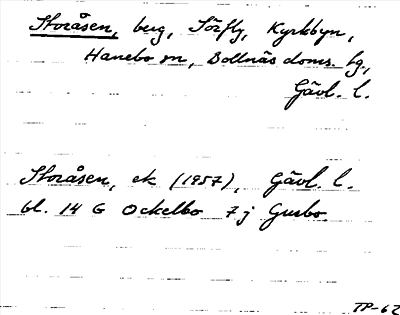 Storåsen, berg, Sörflg, Kyrkbyn,
Hanebo sn, Bollnäs doms. hg,
Gävl. l.
Storåsen, ek (1957), Gävl. l.
bl. 14 G Ockelbo 7 j Gusbo.
TP-62